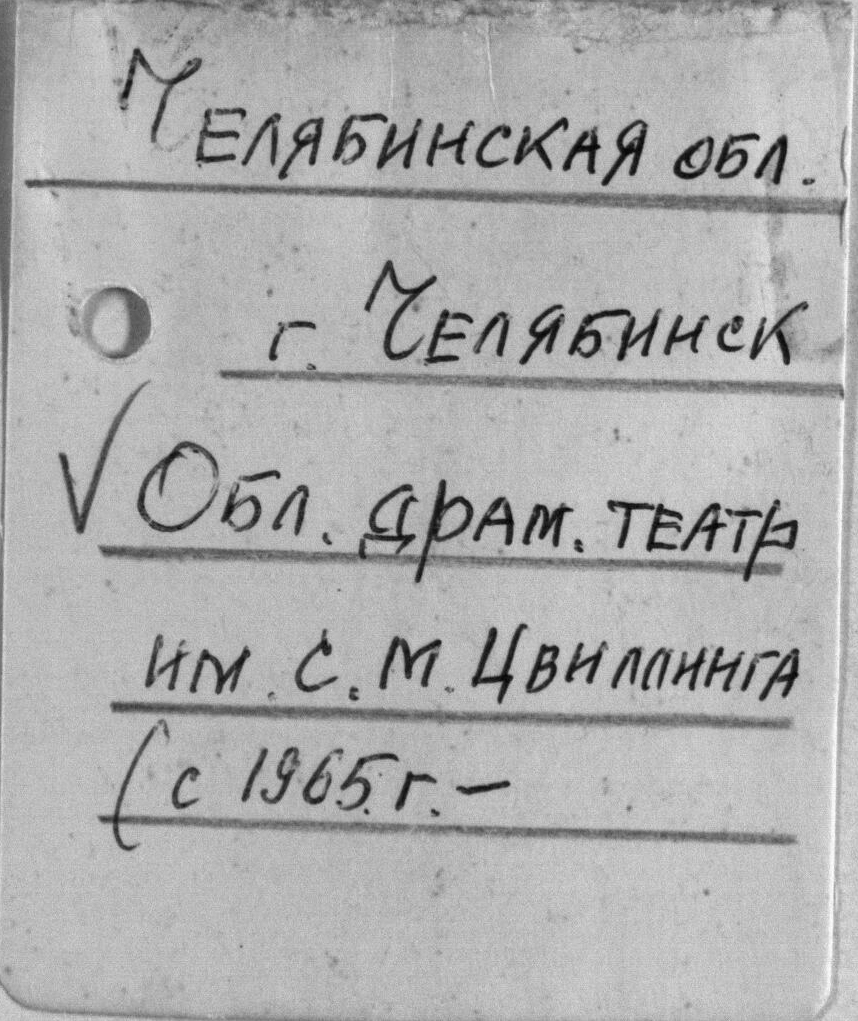 Челябинская обл.
г. Челябинск
√ Обл. драм. театр
им. С. М. Цвиллинга
(с 1965 г. –